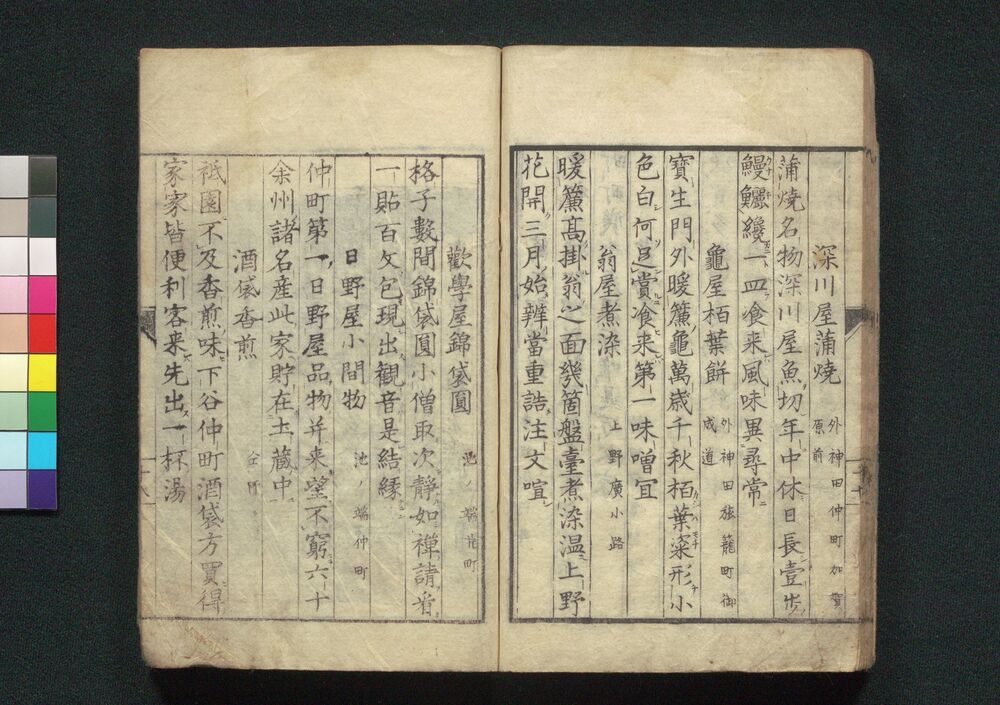 深川屋蒲燒 外神田仲町加賀原前
蒲燒名物深川屋魚切年中休日長壹步
鰻鱺纔一皿食来風味異尋常
龜屋栢葉餅 外神田旅籠町御成道
寶生門外暖簾龜萬歳千秋栢葉粢形小
色白何邑賞食来第一味噌冝
翁屋煮染 上野廣小路
暖簾髙掛翁之面幾箇盤臺煮染温上野
花開三月始辨當重詰注文喧
歡學屋錦袋圓 池ノ端仲町
格子數間錦袋圓小僧取次靜如禪請看
一貼百文包現出観音是結緣
日野屋小間物 池ノ端仲町
仲町第一日野屋品物并来望不窮六十
余州諸名産此家貯在土蔵中
酒袋香煎 仝町
祗園不及香煎味下谷仲町酒袋方買得
家家皆便利客来先出一杯湯